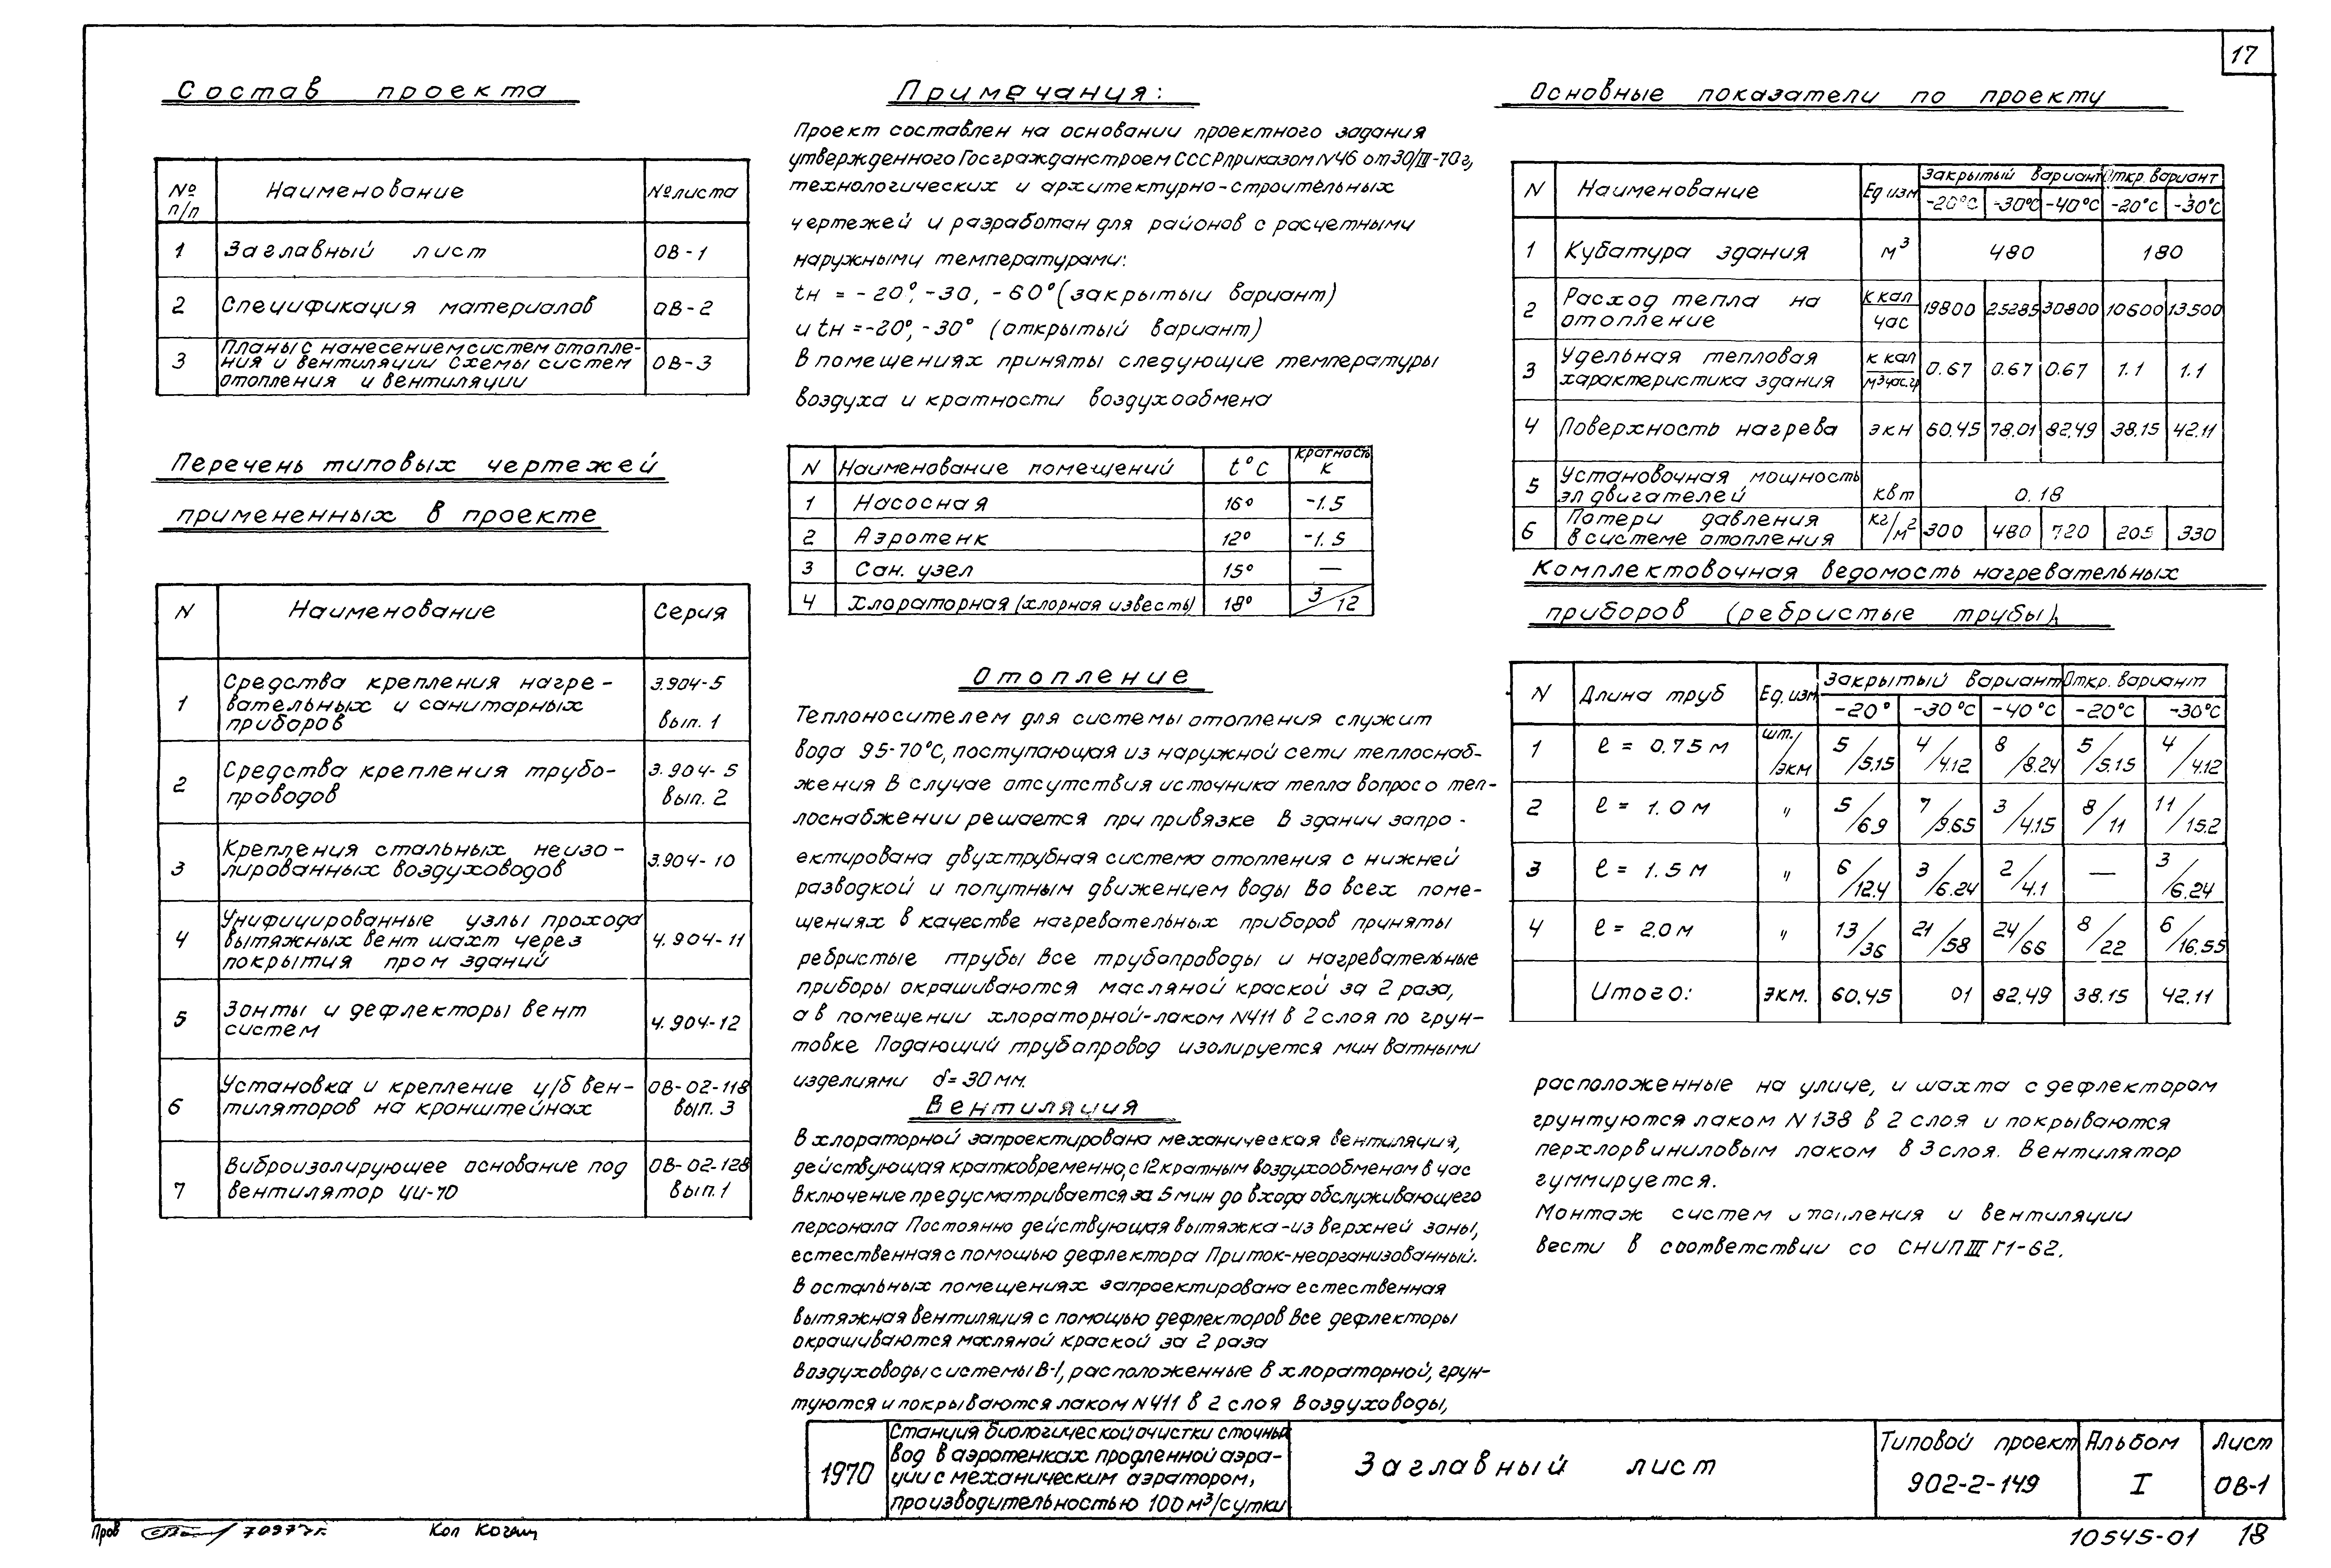 17
Состав проекта
№ п/п Наименование № листа
1 Заглавный лист ОВ-1
2 Спецификация материалов ОВ-2
3 Планы с нанесением систем отопле-
ния и вентиляции Схемы систем ОВ-3
отопления и вентиляции
Перечень типовых чертежей
примененных в проекте
N Наименование Серия
1 Средства крепления нагре- 3.904-5
вательных и санитарных
приборов вып. 1
2 Средства крепления трубо- 3.904-5
проводов вып. 2
3 Крепления стальных неизо- 3.904-10
лированных воздуховодов
4 Унифицированные узлы прохода
вытяжных вент шахт через 4.904-11
покрытия пром зданий
5 Зонты и дефлекторы вент
систем 4.904-12
6 Установка и крепление ц/б вен- ОВ-02-118
тиляторов на кронштейнах вып. 3
7 Виброизолирующее основание под ОВ-02-128
вентилятор ЦИ-70 вып.1
Примечания:
Проект составлен на основании проектного задания
утвержденного Госгражданстроем СССР приказом N46 от 30/III-70г,
технологических и архитектурно-строительных
чертежей и разработан для районов с расчетными
наружными температурами:
tн = -20°, -30, -60° (закрытый вариант)
и tн =-20°, -30° (открытый вариант)
В помещениях приняты следующие температуры
воздуха и кратности воздухообмена
N Наименование помещений t°C кратность К
1 Насосная 16° -1.5
2 Аэротенк 12° -1.5
3 Сан. узел 15° —
4 Хлораторная (хлорная известь) 18° 3/12
Отопление
Теплоносителем для системы отопления служит
вода 95-70°С, поступающая из наружной сети теплоснаб-
жения В случае отсутствия источника тепла вопрос о теп-
лоснабжении решается при привязке В здании запро-
ектирована двухтрубная система отопления с нижней
разводкой и попутным движением воды Во всех поме-
щениях в качестве нагревательных приборов приняты
ребристые трубы Все трубопроводы и нагревательные
приборы окрашиваются масляной краской за 2 раза,
а в помещении хлораторной-лаком N411 в 2 слоя по грун-
товке Подающий трубопровод изолируется мин ватными
изделиями δ=30мм.
Вентиляция
В хлораторной запроектирована механическая вентиляция,
действующая кратковременно, с 12 кратным воздухообменом в час
Включение предусматривается за 5 мин до входа обслуживающего
персонала Постоянно действующая вытяжка-из верхней зоны,
естественная с помощью дефлектора Приток-неорганизованный.
В остальных помещениях запроектирована естественная
вытяжная вентиляция с помощью дефлекторов Все дефлекторы
окрашиваются масляной краской за 2 раза
Воздуховоды системы В-1, расположенные в хлораторной, грун-
туются и покрываются лаком N411 в 2 слоя Воздуховоды,
Основные показатели по проекту
N Наименование Ед изм Закрытый вариант Откр. вариант
-20°С -30°С -40°С -20°С -30°С
1 Кубатура здания м³ 480 180
2 Расход тепла на отопление ккал/час 19800 25285 30800 10600 13500
3 Удельная тепловая характеристика здания ккал/м³час.гр 0.67 0.67 0.67 1.1 1.1
4 Поверхность нагрева экн 60.45 78.01 82.49 38.15 42.11
5 Установочная мощность эл двигателей квт 0.18
6 Потери давления в системе отопления кг/м² 300 480 720 205 330
Комплектовочная ведомость нагревательных
приборов (ребристые трубы).
N Длина труб Ед. изм Закрытый вариант Откр. вариант
-20° -30°С -40°С -20°С -30°С
1 ℓ = 0.75м шт./экм 5/5.15 4/4.12 8/8.24 5/5.15 4/4.12
2 ℓ = 1.0м " 5/6.9 7/9.65 3/4.15 8/11 11/15.2
3 ℓ = 1.5м " 6/12.4 3/6.24 2/4.1 — 3/6.24
4 ℓ = 2.0м " 13/36 21/58 24/66 8/22 6/16.55
Итого: экм. 60.45 01 82.49 38.15 42.11
расположенные на улице, и шахта с дефлектором
грунтуются лаком N138 в 2 слоя и покрываются
перхлорвиниловым лаком в 3 слоя. Вентилятор
гуммируется.
Монтаж систем отопления и вентиляции
вести в соответствии со СНИП III Г1-62.
1970
Станция биологической очистки сточных
вод в аэротенках продленной аэра-
ции с механическим аэратором,
производительностью 100м³/сутки
Заглавный лист
Типовой проект
902-2-149
Альбом
I
Лист
ОВ-1
Пров
Кол
10545-01 18